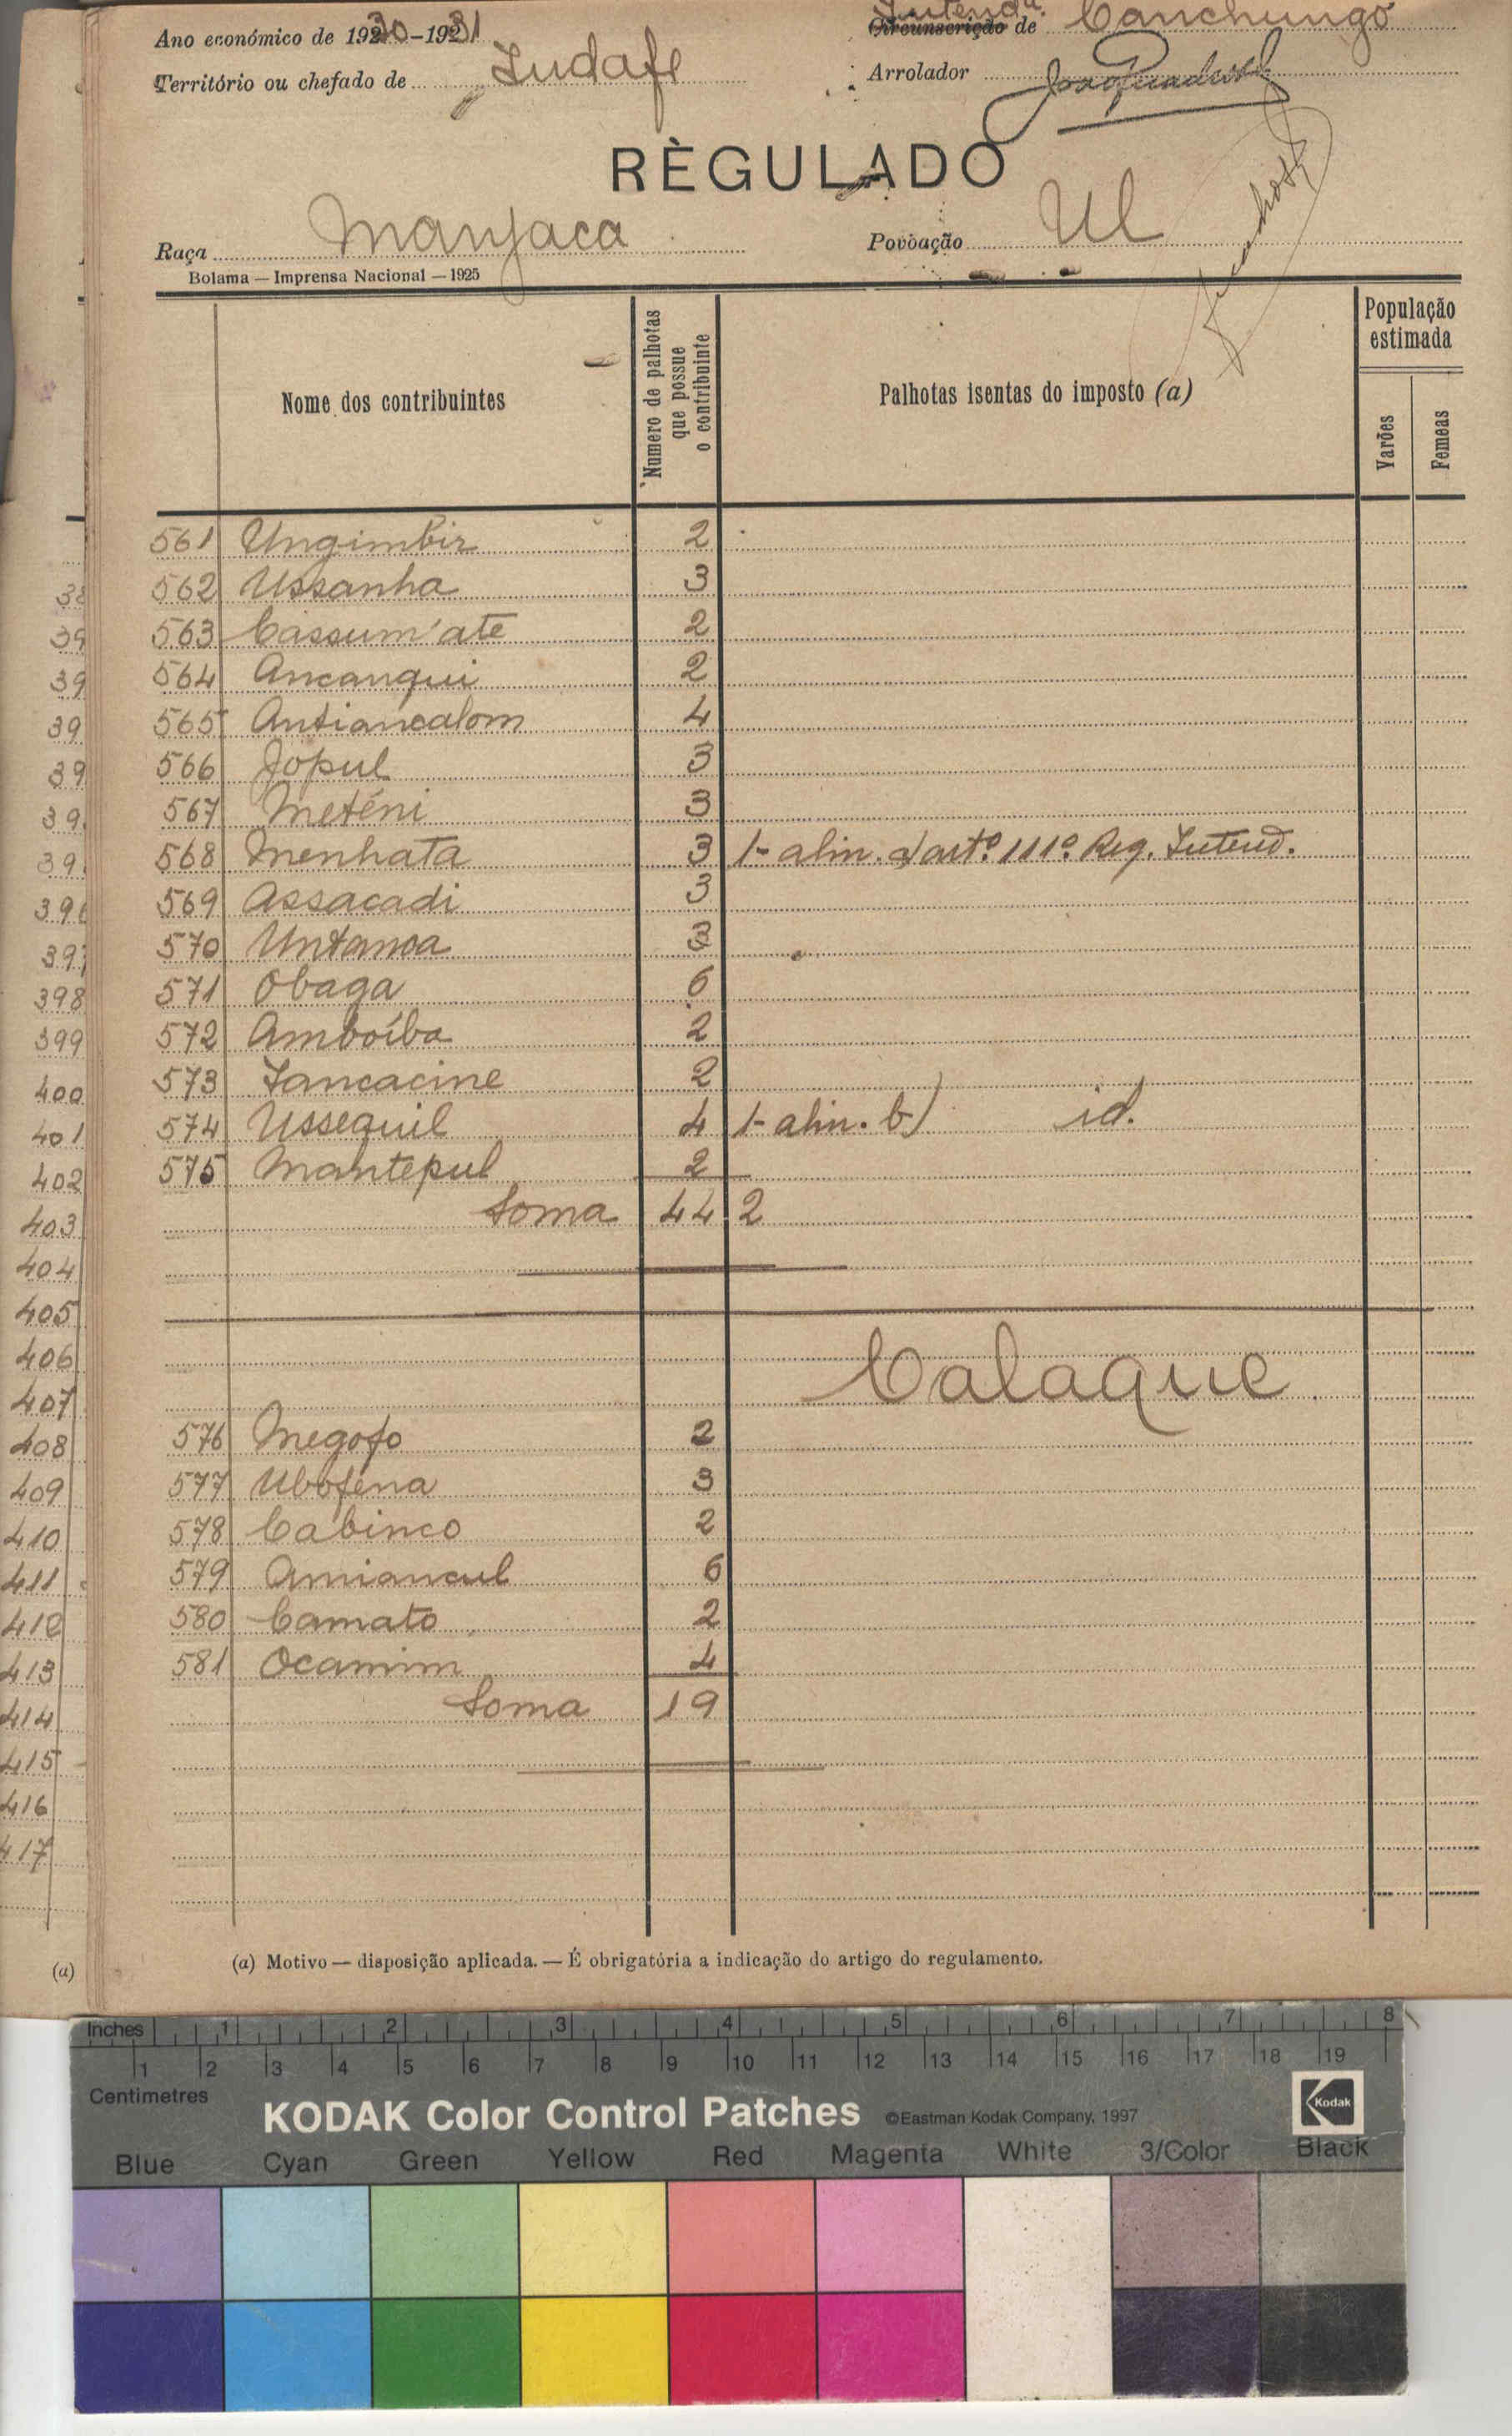 Ano económico de 1930-1931
Intend.ª de Canchungo
Território ou chefado de Indafe
Arrolador
RÈGULADO
Raça Manjaca
Povoação Ul
Bolama — Imprensa Nacional — 1925
Nome dos contribuintes
Numero de palhotas que possue o contribuinte
Palhotas isentas do imposto (a)
População estimada
Varões
Femeas
561 Ungimbir 2
562 Ussanha 3
563 Cassum'ate 2
564 Ancanqui 2
565 Antiancalom 4
566 Jopul 3
567 Meténi 3
568 Menhata 3 1- alin. d) artº 111º Reg. Intend.
569 Assacadi 3
570 Untanoa 3
571 Obaga 6
572 Amboíba 2
573 Jancacine 2
574 Ussequil 4 1- alin. b) id.
575 Mantepul 2
Soma 44 2
Calaque
576 Megofo 2
577 Ubofena 3
578 Cabinco 2
579 Amiancul 6
580 Camato 2
581 Ocamim 4
Soma 19
(a) Motivo — disposição aplicada. — É obrigatória a indicação do artigo do regulamento.
38
39
39
39
39
39
39
396
397
398
399
400
401
402
403
404
405
406
407
408
409
410
411
412
413
414
415
416
417
(a)
Inches 1 2 3 4 5 6 7 8
1 2 3 4 5 6 7 8 9 10 11 12 13 14 15 16 17 18 19
Centimetres
KODAK Color Control Patches ©Eastman Kodak Company, 1997 Kodak
Blue Cyan Green Yellow Red Magenta White 3/Color Black